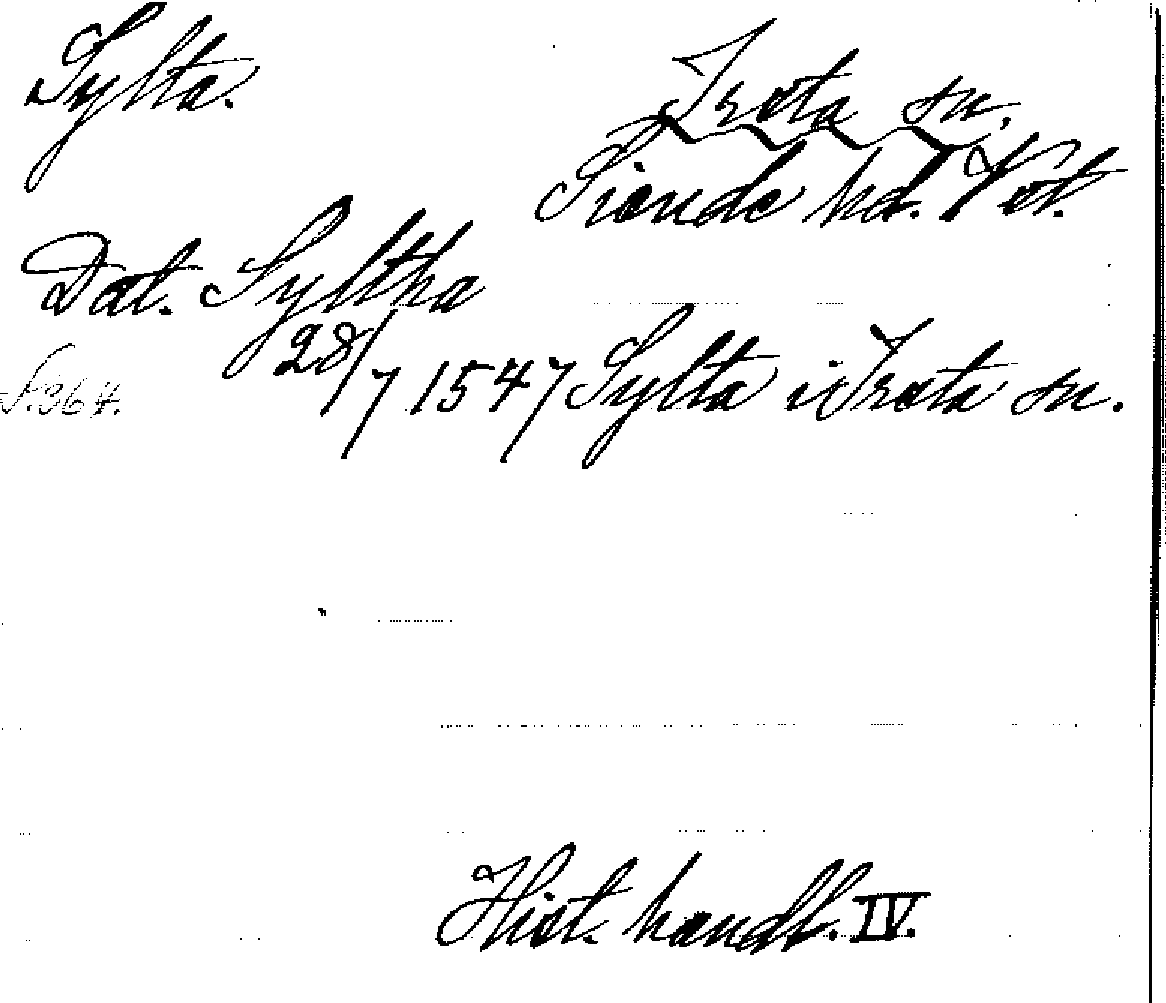 Sylta.
Irsta sn.
Siende hd. Vstl.
Dat. Syltha
28/7 1547 Sylta i Irsta sn.
S. 364.
Hist. handl. IV.